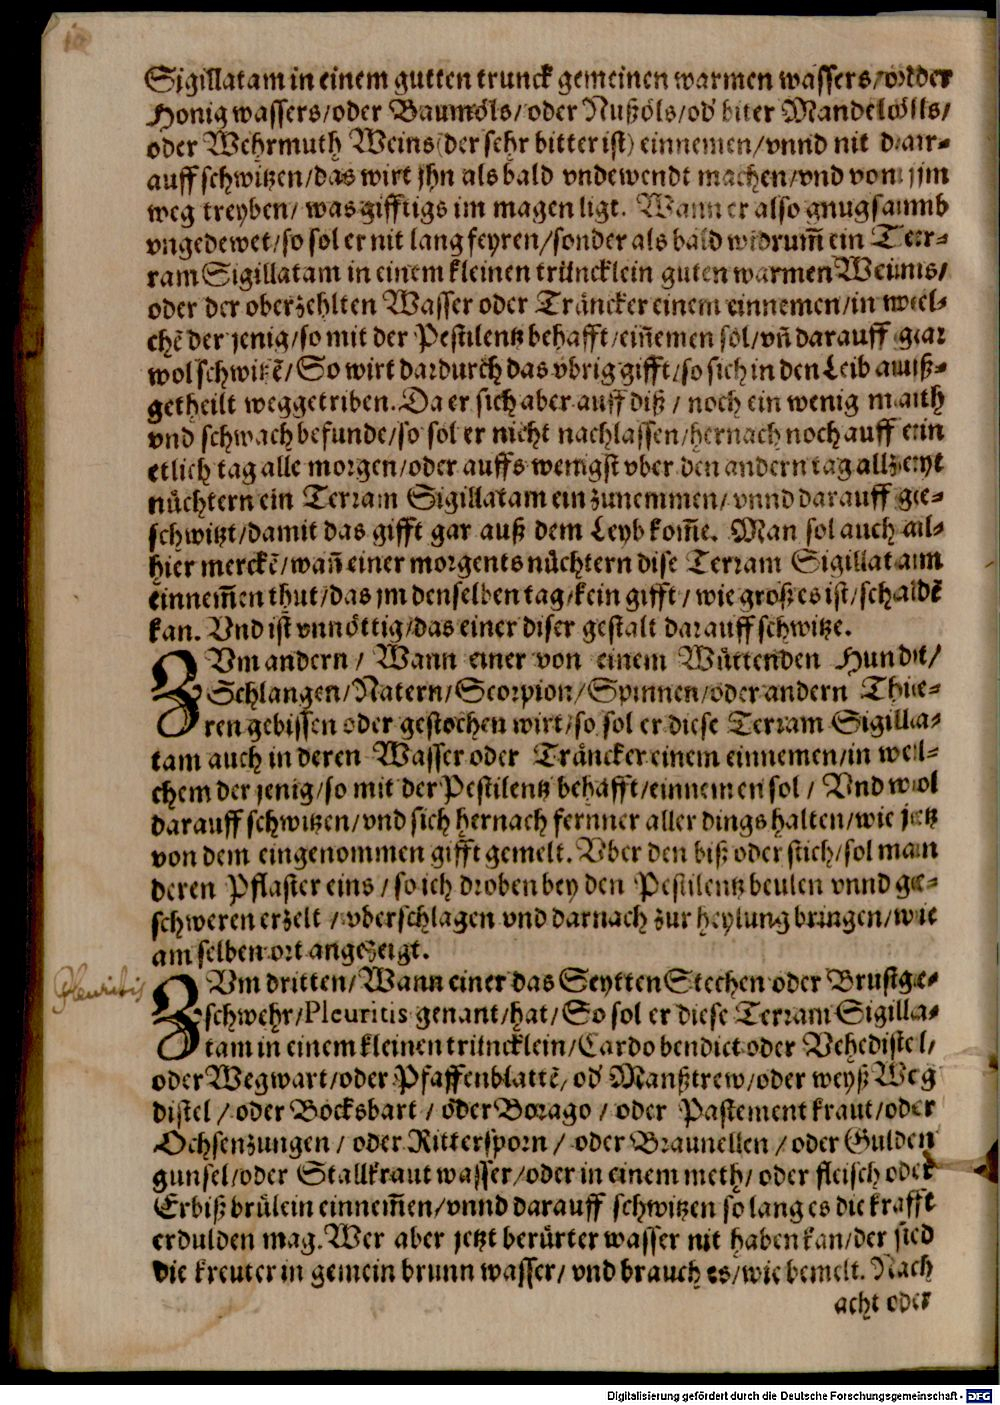 Sigillatam in einem gutten trunck gemeinen warmen wassers/ oder
Honig wassers/ oder Baumöls/ oder Nußöls/ od' biter Mandelölls/
oder Wehrmuth Weins (der sehr bitter ist) einnemen/ vnnd nit darauff
auff schwitzen/ das wirt jhn als bald vndewendt machen/ vnd von jhm
weg treyben/ was gifftigs im magen ligt. Wann er also gnugsamb
vngedewet/ so sol er nit lang feyren/ sonder als bald widrum̃ ein Ter-
ram Sigillatam in einem kleinen trüncklein guten warmen Weins/
oder der oberzehlten Wasser oder Träncker einem einnemen/ in wel-
chẽ der jenig/ so mit der Pestilentz behafft/ eiñemen sol/ vñ darauff gar
wol schwitzẽ/ So wirt dardurch das vbrig gifft/ so sich in den Leib auß-
getheilt weggetriben. Da er sich aber auff diß/ noch ein wenig math
vnd schwach befunde/ so sol er nicht nachlassen/ hernach noch auff ein
etlich tag alle morgen/ oder auffs wenigst vber den andern tag allzeyt
nüchtern ein Terram Sigillatam ein zunemmen/ vnnd darauff ge-
schwitzt/ damit das gifft gar auß dem Leyb kom̃e. Man sol auch all-
hier merckẽ/ wañ einer morgents nüchtern dise Terram Sigillatam
einnem̃en thut/ das jm denselben tag/ kein gifft/ wie groß es ist/ schadẽ
kan. Vnd ist vnnöttig/ das einer diser gestalt darauff schwitze.
ZVm andern/ Wann einer von einem Wüttenden Hundt/
Schlangen/ Natern/ Scorpion/ Spinnen/ oder andern Thie-
ren gebissen oder gestochen wirt/ so sol er diese Terram Sigilla-
tam auch in deren Wasser oder Träncker einem einnemen/ in wel-
chem der jenig/ so mit der Pestilentz behafft/ einnemen sol/ Vnd wol
darauff schwitzen/ vnd sich hernach fernner aller dings halten/ wie jetz
von dem eingenommen gifft gemelt. Vber den biß oder stich/ sol man
deren Pflaster eins/ so ich droben bey den Pestilentz beulen vnnd ge-
schweren erzelt/ vberschlagen vnd darnach zur heylung bringen/ wie
am selben ort angezeigt.
Pleuritis
ZVm dritten/ Wann einer das Seytten Stechen oder Brustge-
schwehr/ Pleuritis genant/ hat/ So sol er diese Terram Sigilla-
tam in einem kleinen trüncklein/ Cardo bendict oder Vehedistel/
oder Wegwart/ oder Pfaffenblattẽ/ od' Manßtrew/ oder weyß Weg
distel/ oder Bocksbart/ oder Borago/ oder Pastement kraut/ oder
Ochsenzungen/ oder Rittersporn/ oder Braunellen/ oder Gulden
gunsel/ oder Stallkraut wasser/ oder in einem meth/ oder fleisch oder
Erbiß brülein einnem̃en/ vnnd darauff schwitzen so lang es die krafft
erdulden mag. Wer aber jetzt berürter wasser nit haben kan/ der sied
die kreuter in gemein brunn wasser/ vnd brauch es/ wie bemelt. Nach
acht oder
Digitalisierung gefördert durch die Deutsche Forschungsgemeinschaft - DFG